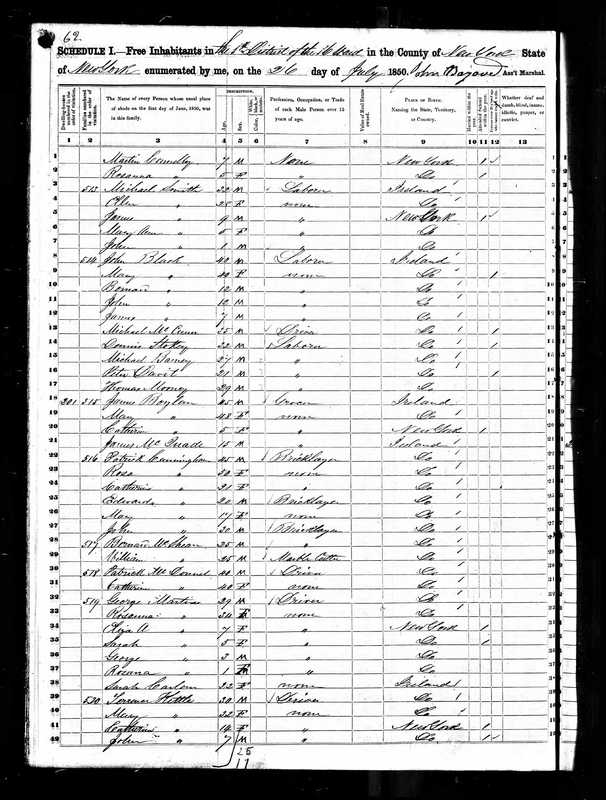 62
SCHEDULE I.—Free Inhabitants in the 6th District of the 16 Ward in the County of New York State
of New York enumerated by me, on the 26 day of July 1850. John Ass't Marshal.
Dwelling-houses numbered in the order of visitation.
Families numbered in the order of visitation.
The Name of every Person whose usual place of abode on the first day of June, 1850, was in this family.
DESCRIPTION.
Age.
Sex.
Color, White, black, or mulatto.
Profession, Occupation, or Trade of each Male Person over 15 years of age.
Value of Real Estate owned.
PLACE OF BIRTH. Naming the State, Territory, or Country.
Married within the year.
Attended School within the year.
Whether deaf and dumb, blind, insane, idiotic, pauper, or convict.
1 2 3 4 5 6 7 8 9 10 11 12 13
1 Martin Connolly 7 M None New York 1 1
2 Rosanna " 5 F " Do 1
3 513 Michael Smith 32 M Laborer Ireland
4 Ellen " 25 F none Do
5 James " 9 M " New York 1
6 Mary Ann " 5 F " Do
7 John " 1 M " Do
8 514 John Black 40 M Laborer Ireland
9 Mary " 40 F none Do 1
10 " 12 M " Do
11 John " 10 M " Do
12 James " 7 M " Do
13 Michael 35 M Driver Do 1
14 22 M Laborer Do 1
15 Michael 27 M " Do
16 Peter 21 M " Do 1
17 Thomas Mooney 29 M " Do
18 201 315 James Boylan 45 M Ireland
19 Mary " 43 F none Do
20 Catherin " 5 F " New York 1
21 James Mc Quade 15 M Ireland
22 516 Patrick Cunningham 45 M Bricklayer Do
23 Rosa " 30 F none Do
24 Catherine " 21 F " Do
25 Edward " 20 M Bricklayer Do
26 Mary " 17 F none Do
27 John " 20 M Bricklayer Do
28 517 Mc Shean 25 M " Do
29 William " 25 M Marble Cutter Do
30 518 Patrick Mc Donnel 40 M Driver Do
31 Catherin " 40 F none Do
32 519 George Martin 29 M Driver Do
33 Rosanna " 34 F none Do
34 Eliza A " 7 F " New York 1
35 Sarah " 5 F " Do 1
36 George " 3 M " Do
37 Rosanna " 1 F " Do
38 Sarah 22 F none Ireland
39 520 30 M Driver Do
40 Mary " 32 F none Do
41 Catherine " 19 F " New York 1
42 John " 7 M " Do 1 1
25
17